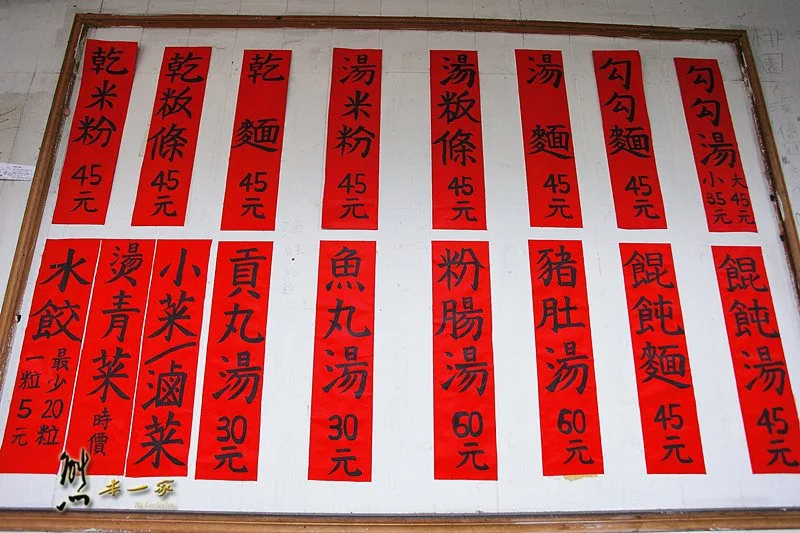 勾勾湯 大45元 小35元
勾勾麵 45元
湯麵 45元
湯粄條 45元
湯米粉 45元
乾麵 45元
乾粄條 45元
乾米粉 45元
餛飩湯 45元
餛飩麵 45元
豬肚湯 60元
粉腸湯 60元
魚丸湯 30元
貢丸湯 30元
小菜/滷菜
燙青菜 時價
水餃 最少20粒 一粒5元